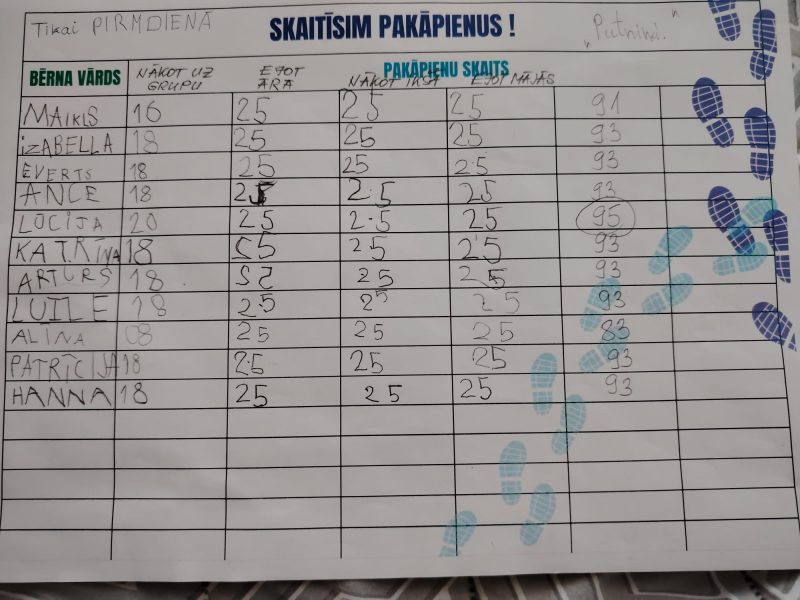 Tikai PIRMDIENĀ SKAITĪSIM PAKĀPIENUS ! "Putniņi."
PAKĀPIENU SKAITS
BĒRNA VĀRDS NĀKOT UZ GRUPU EJOT ĀRĀ NĀKOT IKŠĀ EJOT MĀJĀS
MAIKLS 16 25 25 25 91
IZABELLA 18 25 25 25 93
EVERTS 18 25 25 25 93
ANCE 18 25 2.5 25 93
LOCIJA 20 25 2.5 25 95
KATRĪNA 18 25 25 25 93
ARTURS 18 25 25 25 93
LUĪLE 18 25 25 25 93
ALINA 08 25 25 25 83
PATRĪCIJA 18 25 25 25 93
HANNA 18 25 25 25 93